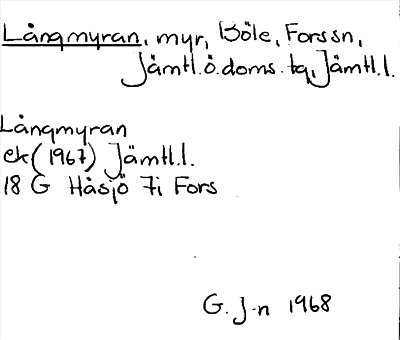 Långmyran, myr, Böle, Forssn,
Jämtl.ö.doms.tg, Jämtl.l.
Långmyran
ek (1967) Jämtl.l.
18 G Håsjö 7i Fors
G. J-n 1968